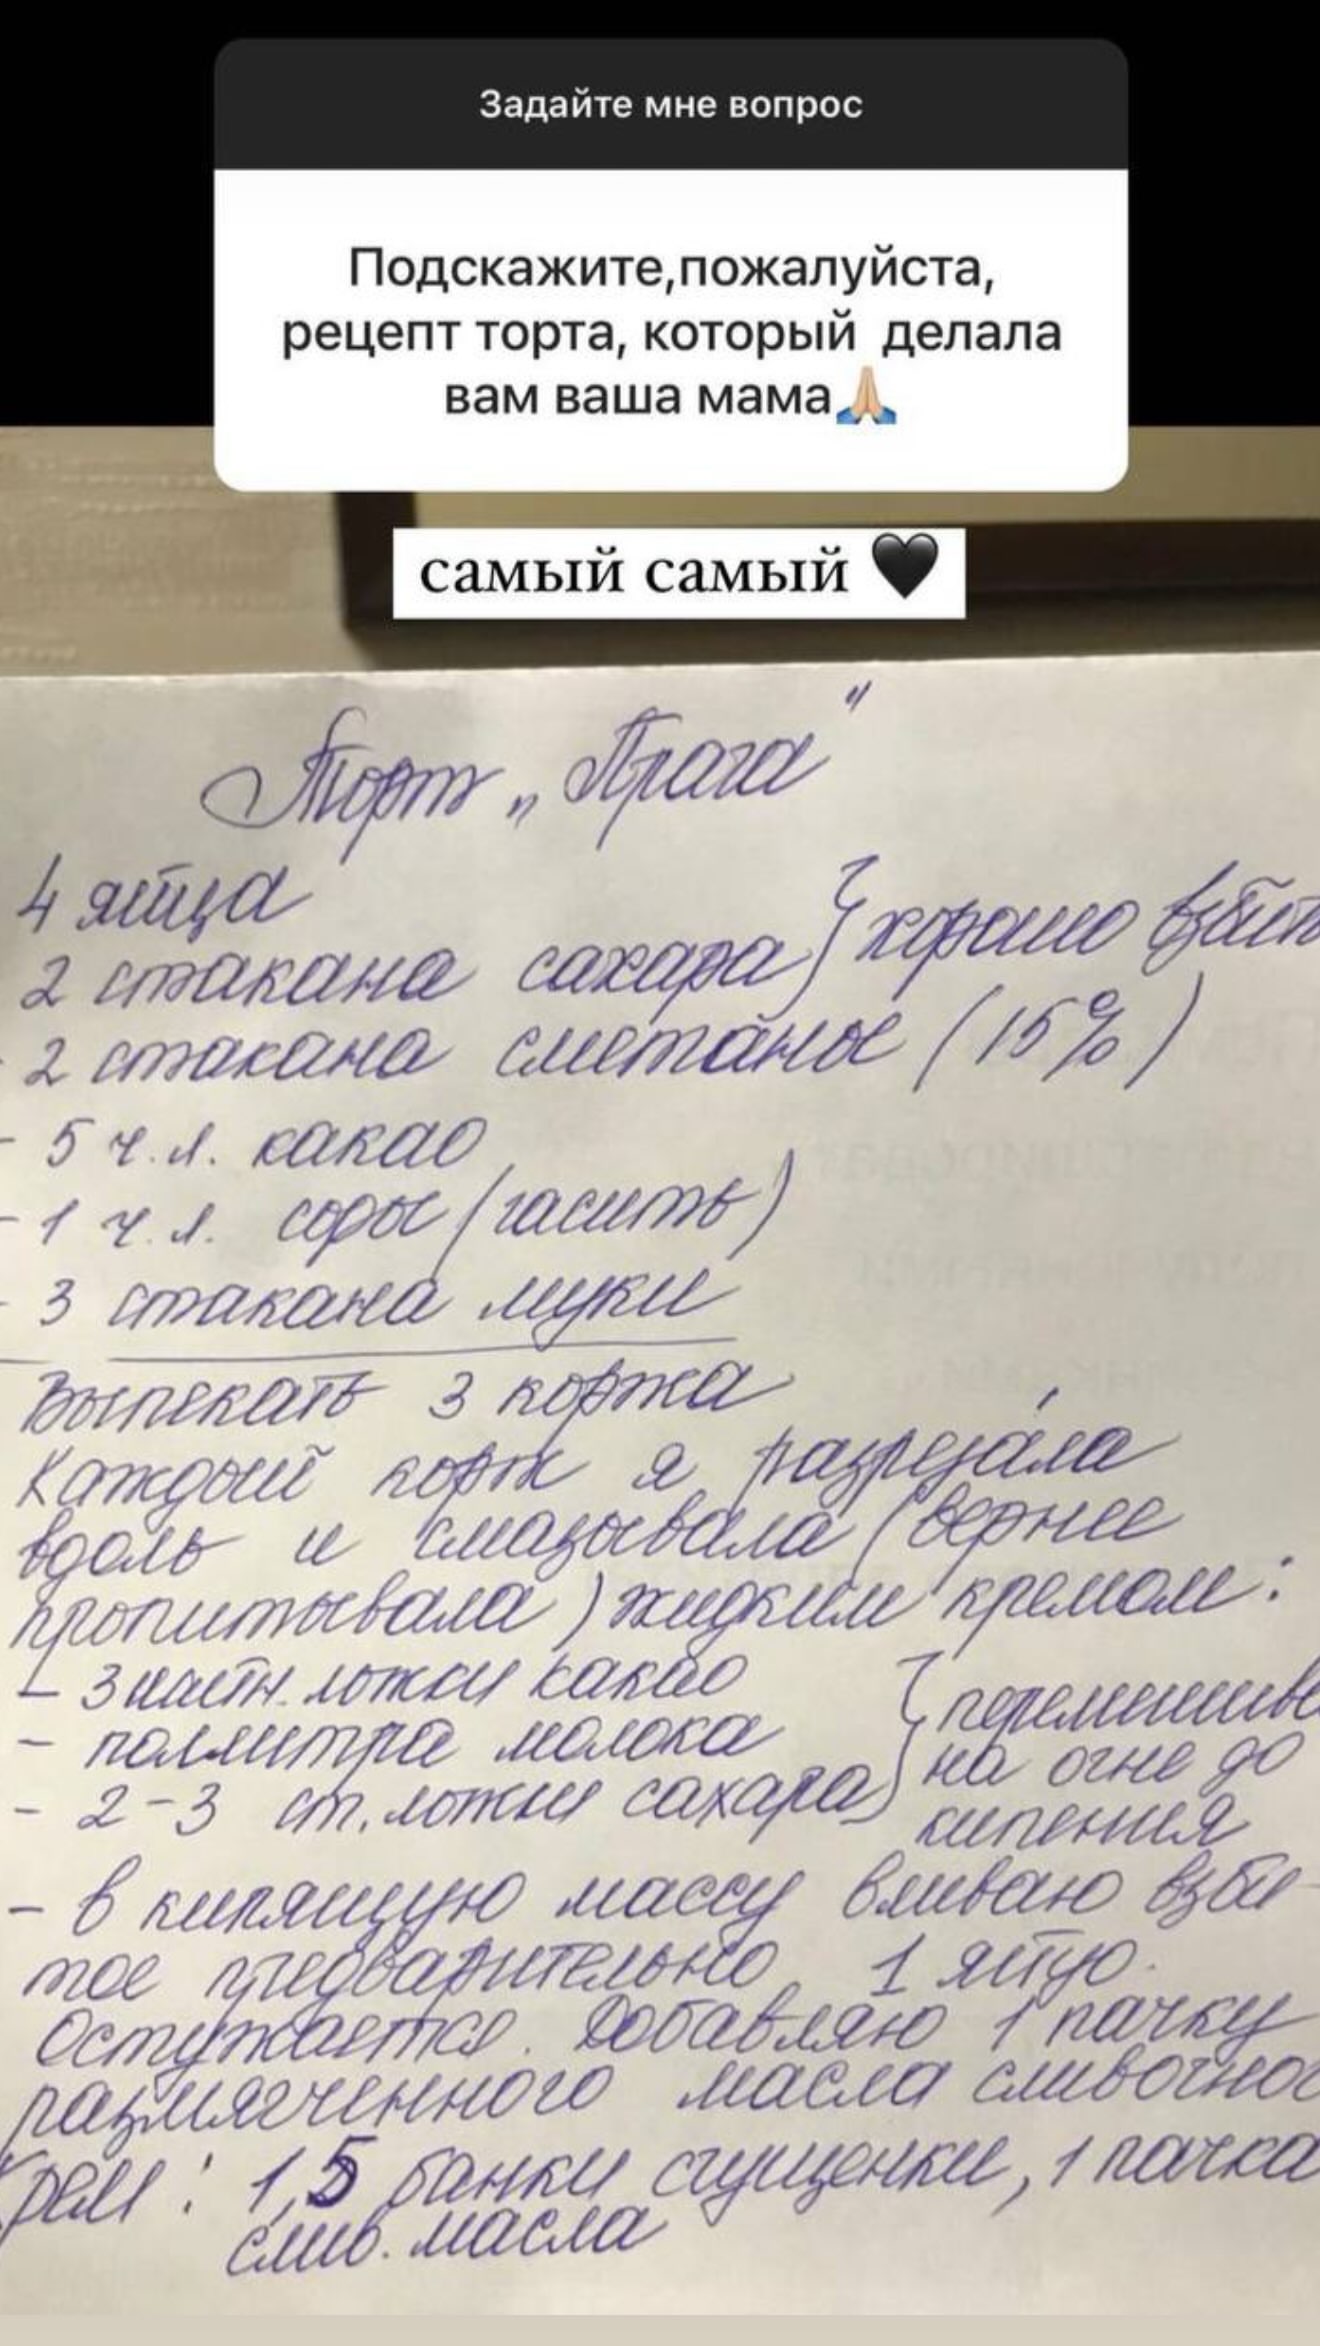 Задайте мне вопрос
Подскажите,пожалуйста,
рецепт торта, который делала
вам ваша мама🙏🏼
самый самый 🖤
Торт „Прага"
4 яйца } хорошо взбить
2 стакана сахара
- 2 стакана сметаны (15%)
- 5 ч.л. какао
- 1 ч.л. соды (гасить)
- 3 стакана муки
Выпекать 3 коржа
Каждый корж я разреза́ла
вдоль и смазывала (вернее
пропитывала) жидким кремом:
- 3 ложки какао
- поллитра молока
- 2-3 ст. ложки сахара
} перемешива
на огне до
кипения
- в кипящую массу вливаю взби-
тое предварительно 1 яйцо.
Остужается. Добавляю 1 пачку
размягченного масла сливочног
Крем: 1,5 банки сгущенки, 1 пачка
слив. масла